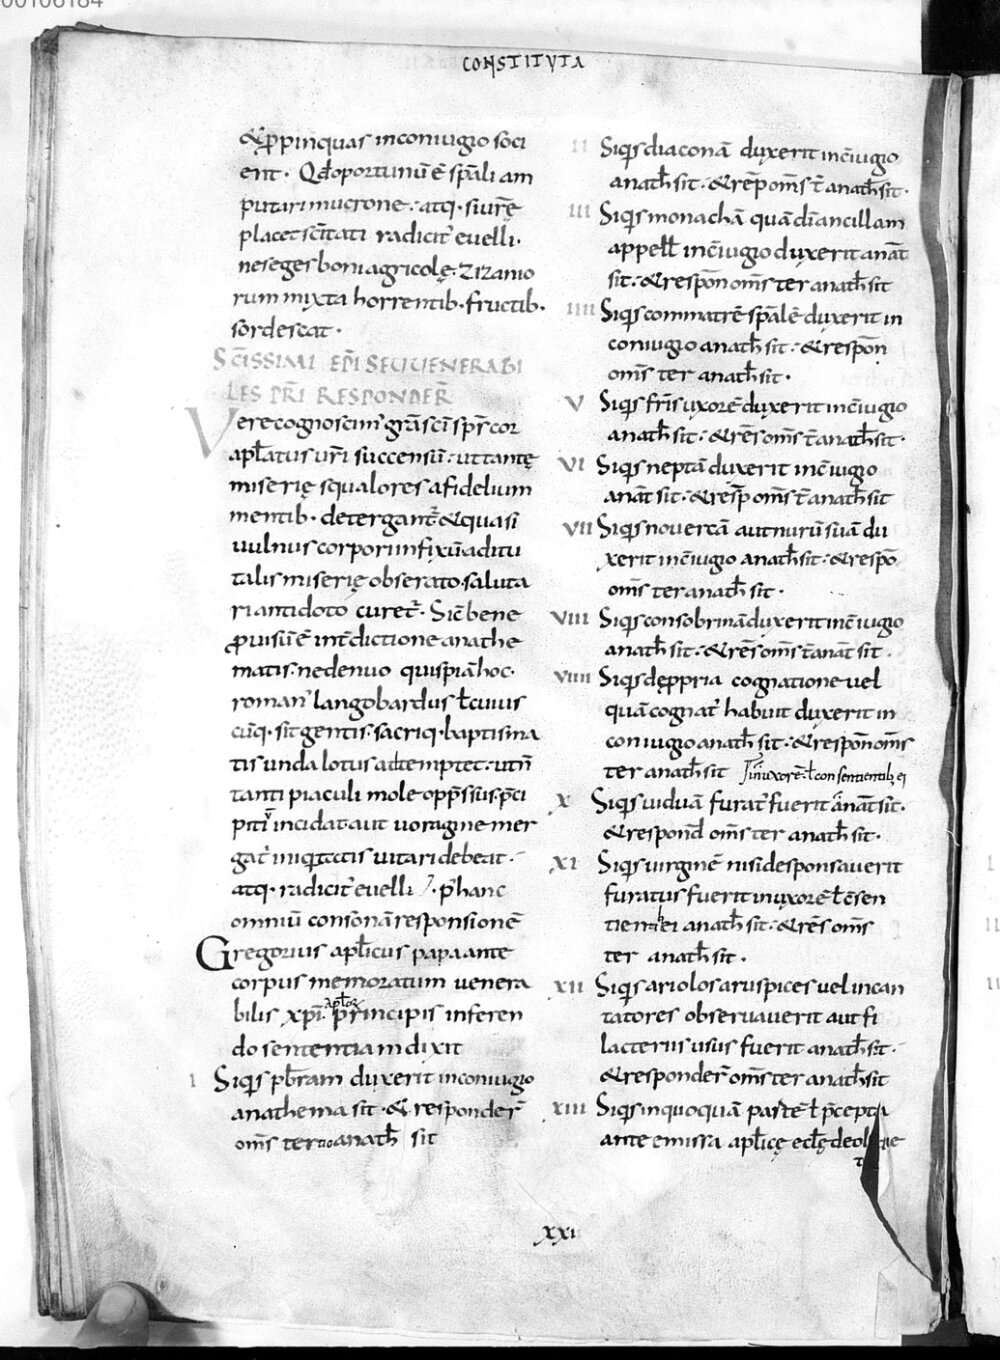 00106184
CONSTITVTA
& ꝓpinquas inconiugio soci
ent. Qd̄ oportunū ē sp̄ali am
putari mucrone. atq; si urē
placet sc̄itati radicit᾽ euelli.
ne seges boni agricolę. zizanio
rum mixta horrentib. fructib.
sordescat.
SC̄ISSIMI EP̄I SEU UENERABI
LES PR̄I RESPONDER̄
Vere cognoscim᾽ grā sc̄i sp̄r cor
ap̄latus ur̄i succensū. ut tantę
miserię squalores a fidelium
mentib. detergant᾽. & quasi
uulnus corpori infixū aditu
talis miserię obserato. saluta
ri antidoto curet᾽. Sic̄ bene
ꝓuisū ē int̄dictione anathe
matis. ne denuo quispiā hoc.
roman᾽ langobardus ł cuius
cūq. sit gentis. sacriq. baptisma
tis unda lotus adtemptet. ut n̄
tanti piaculi mole opp̄ssus. p̄ci
piti᾽ incidat. aut uoragine mer
gat᾽ iniq̇tatis uitari debeat.
atq. radicit᾽ euelli. P̄ hanc
omniū consonā responsionē
Gregorius ap̄licus papa ante
corpus memoratum uenera
aplor̄
bilis xp̄i principis inferen
do sententiam dixit
I Siq̄s pb̄ram duxerit inconiugio
anathema sit. & responder̄
om̄s ter anath̄ sit
II Siq̄s diaconā duxerit in c̄iugio
anath̄ sit. & rēp om̄s t̄ anath̄ sit.
III Siq̄s monachā quā d̄i ancillam
appelł in c̄iugio duxerit anat̄
sit. & respōn om̄s ter anath̄ sit
IIII Siq̄s commatrē sp̄alē duxerit in
coniugio anath̄ sit. & respōn
om̄s ter anath̄ sit.
V Siq̄s fr̄is uxorē duxerit in c̄iugio
anath̄ sit. & rēs om̄s t̄ anath̄ sit.
VI Siq̄s neptā duxerit in c̄iugio
anat̄ sit. & resp̄ om̄s t̄ anath̄ sit
VII Siq̄s nouercā aut nurū suā du
xerit in c̄iugio anath̄ sit. & respō
om̄s ter anath̄ sit.
VIII Siq̄s consobrinā duxerit in c̄iugio
anath̄ sit. & rēs om̄s t̄ anat̄ sit.
VIIII Siq̄s dę ꝓpria cognatione uel
quā cognat᾽ habuit duxerit in
coniugio anath̄ sit. & respōn om̄s
ter anath̄ sit in uxorē. ł consentientib; ei
X Siq̄s uiduā furat᾽ fuerit anat̄ sit.
& respond̄ om̄s ter anath̄ sit.
XI Siq̄s uirginē nisi desponsauerit
furatus fuerit in uxorē ł c̄sen
tientib ei anath̄ sit. & rēs om̄s
ter anath̄ sit.
XII Siq̄s ariolos aruspices uel incan
tatores obseruauerit aut fi
lacteriis usus fuerit anath̄ sit.
& responder̄ om̄s ter anath̄ sit
XIII Siq̄s inquoquā parte ł p̄cepta
ante emissa ap̄licę ecl̄ę de
XXI